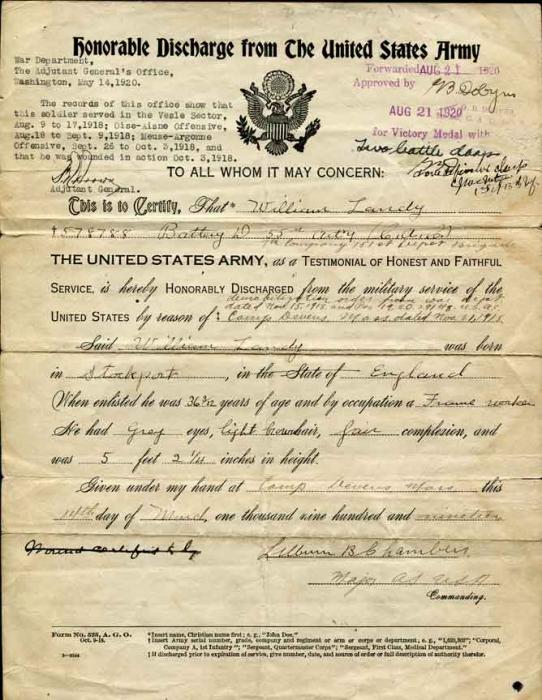 Honorable Discharge from The United States Army
War Department,
The Adjutant General's Office,
Washington, May 14, 1920.
The records of this office show that
this soldier served in the Vesle Sector,
Aug. 9 to 17, 1918; Oise-Aisne Offensive,
Aug. 18 to Sept. 9, 1918; Meuse-Argonne
Offensive, Sept. 26 to Oct. 3, 1918, and
that he was wounded in action Oct. 3, 1918.
Adjutant General.
Forwarded AUG 21 1920
Approved by
AUG 21 1920
for Victory Medal with
two battle clasps
TO ALL WHOM IT MAY CONCERN:
This is to Certify, That* William Landy
†578788 Battery D 55th Arty
THE UNITED STATES ARMY, as a TESTIMONIAL OF HONEST AND FAITHFUL
SERVICE, is hereby HONORABLY DISCHARGED from the military service of the
demobilization order from War Dept
dated Nov. 15, 1918
UNITED STATES by reason of‡ Camp Devens Mass dated Nov. 21, 1918
Said William Landy was born
in Stockport, in the State of England
When enlisted he was 36 3/12 years of age and by occupation a Frame worker
He had Grey eyes, light brown hair, fair complexion, and
was 5 feet 2 1/4 inches in height.
Given under my hand at Camp Devens Mass this
14th day of, one thousand nine hundred and nineteen
Lilburn B Chambers
Major USA
Commanding.
Form No. 525, A. G. O.
Oct. 9-18.
*Insert name, Christian name first; e. g., "John Doe."
†Insert Army serial number, grade, company and regiment or arm or corps or department; e. g., "1,620,302"; "Corporal,
Company A, 1st Infantry"; "Sergeant, Quartermaster Corps"; "Sergeant, First Class, Medical Department."
‡If discharged prior to expiration of service, give number, date, and source of order or full description of authority therefor.